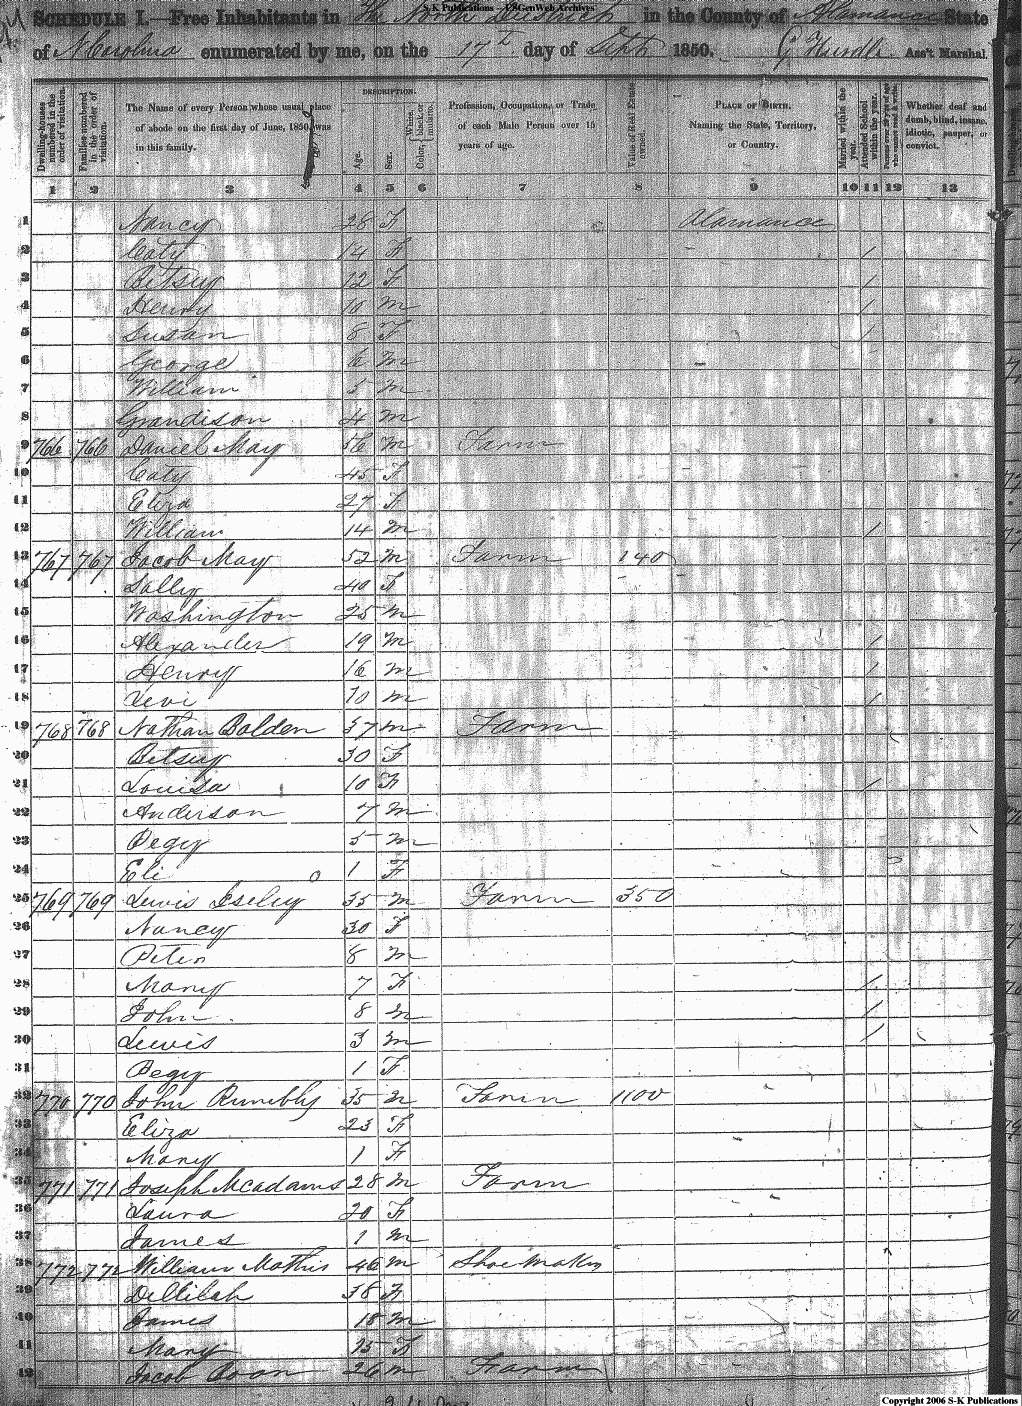 S-K Publications – USGenWeb Archives
SCHEDULE I.—Free Inhabitants in The North District in the County of Alamance State
of N Carolina enumerated by me, on the 17th day of Sept 1850. Ass't Marshal
DESCRIPTION.
Dwelling-houses numbered in the order of visitation. Families numbered in the order of visitation. The Name of every Person whose usual place of abode on the first day of June, 1850, was in this family. Age. Sex. Color, White, black or mulatto. Profession, Occupation, or Trade of each Male Person over 15 years of age. Value of Real Estate owned. PLACE OF BIRTH. Naming the State, Territory, or Country. Married within the year. Attended School within the year. Whether deaf and dumb, blind, insane, idiotic, pauper, or convict.
1 2 3 4 5 6 7 8 9 10 11 12 13
1 Nancy 28 F Alamance
2 Caty 14 F 1
3 Betsey 12 F 1
4 Henry 10 m 1
5 Susan 8 F 1
6 George 6 m
7 William 5 m
8 Grandison 4 m
9 766 766 Daniel May 56 m Farm
10 Caty 45 F
11 Eliza 27 F
12 William 14 m 1
13 767 767 Jacob May 52 m Farm 140
14 Sally 40 F
15 Washington 25 m
16 Alexander 19 m 1
17 Henry 16 m 1
18 Levi 10 m 1
19 768 768 Nathan Bolden 37 m Farm
20 Betsey 30 F
21 Louisa 10 F 1
22 Anderson 7 m
23 Pegy 5 m
24 Eli 1 F
25 769 769 Lewis Iseley 35 m Farm 350
26 Nancy 30 F
27 Peter 8 m
28 Mary 7 F 1
29 John 8 m 1
30 Lewis 3 m 1
31 Pegy 1 F
32 770 770 John Rumbly 35 m Farm 1100
33 Eliza 23 F
34 Mary 1 F
35 771 771 Joseph Mcadams 28 m Farm
36 Laura 20 F
37 James 1 m
38 772 772 William Mathis 46 m Shoe Maker
39 Dellilah 38 F
40 James 18 m
41 Mary 15 F
42 Jacob Boon 26 m Farm
Copyright 2006 S-K Publications